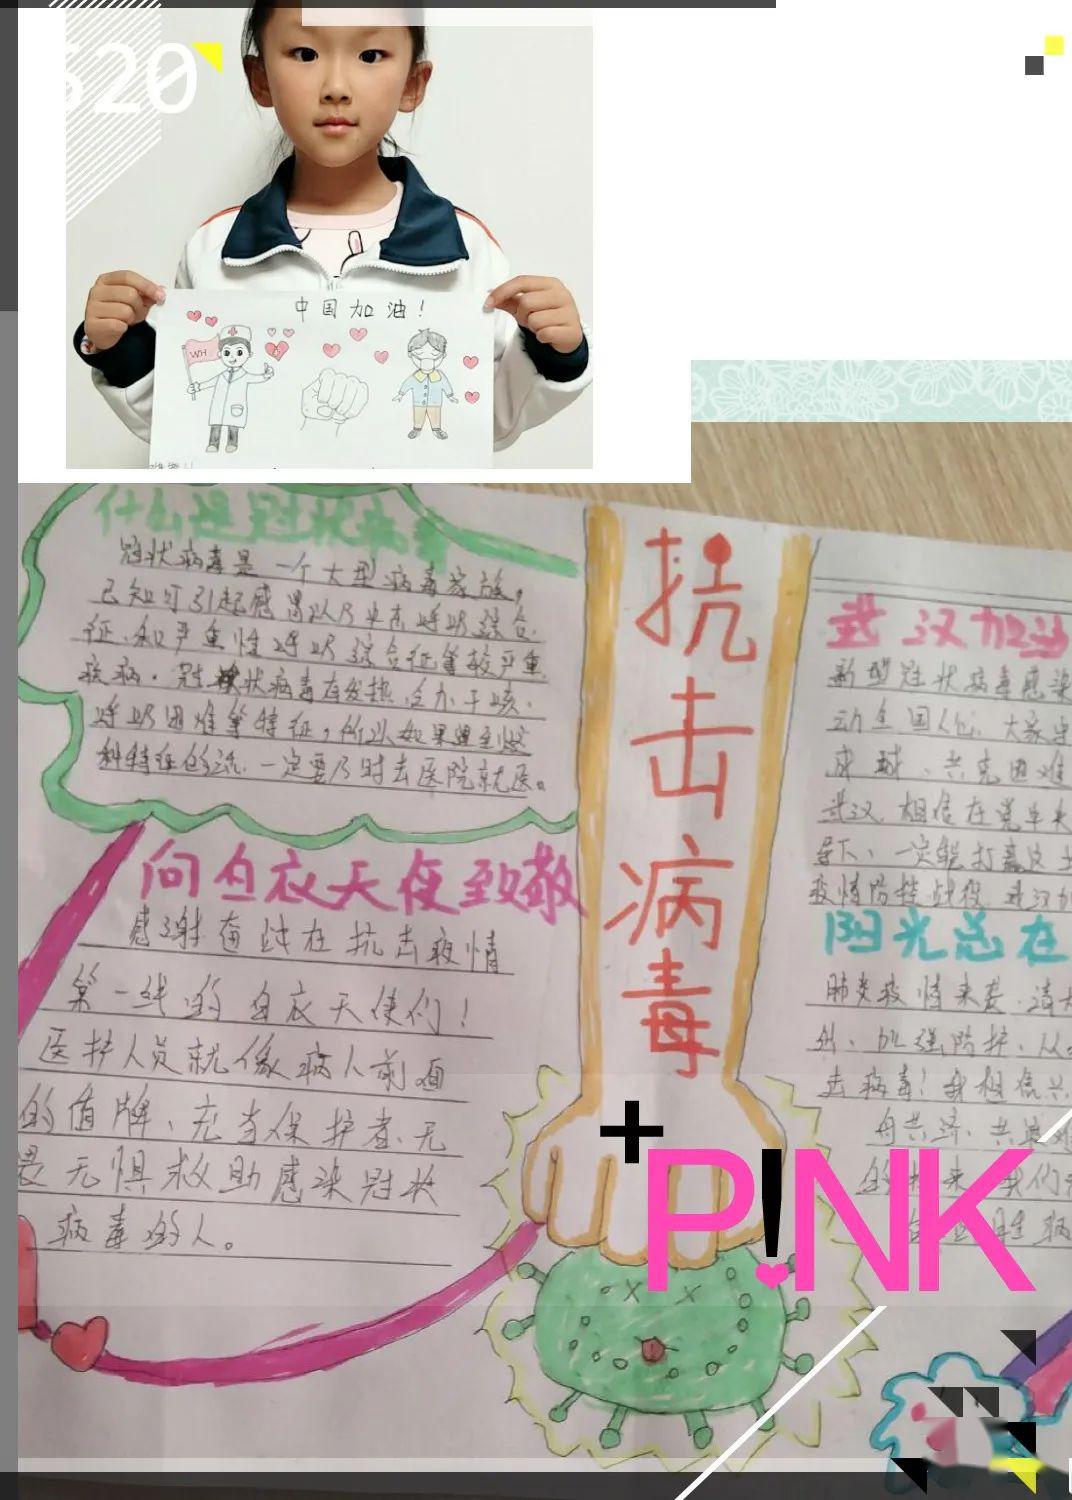 520
中国加油！
WH
什么是冠状病毒
冠状病毒是一个大型病毒家族，
已知可引起感冒以及中东呼吸综合
征和严重性呼吸综合征等较严重
疾病。冠状病毒有发热、乏力干咳、
呼吸困难等特征，所以如果遇到这
种特征的话，一定要及时去医院就医。
向白衣天使致敬
感谢奋战在抗击疫情
第一线的白衣天使们！
医护人员就像病人前面
的盾牌、充当保护者、无
畏无惧救助感染冠状
病毒的人。
抗
击
病
毒
武汉加油
新型冠状病毒感染
动全国人心、大家
成城、共克困难
武汉，相信在党中央
导下、一定能打赢这
疫情防控战役、武汉加
阳光总在
肺炎疫情来袭、请
外、加强防护、从
击病毒！我相信
舟共济、共
的
P!NK